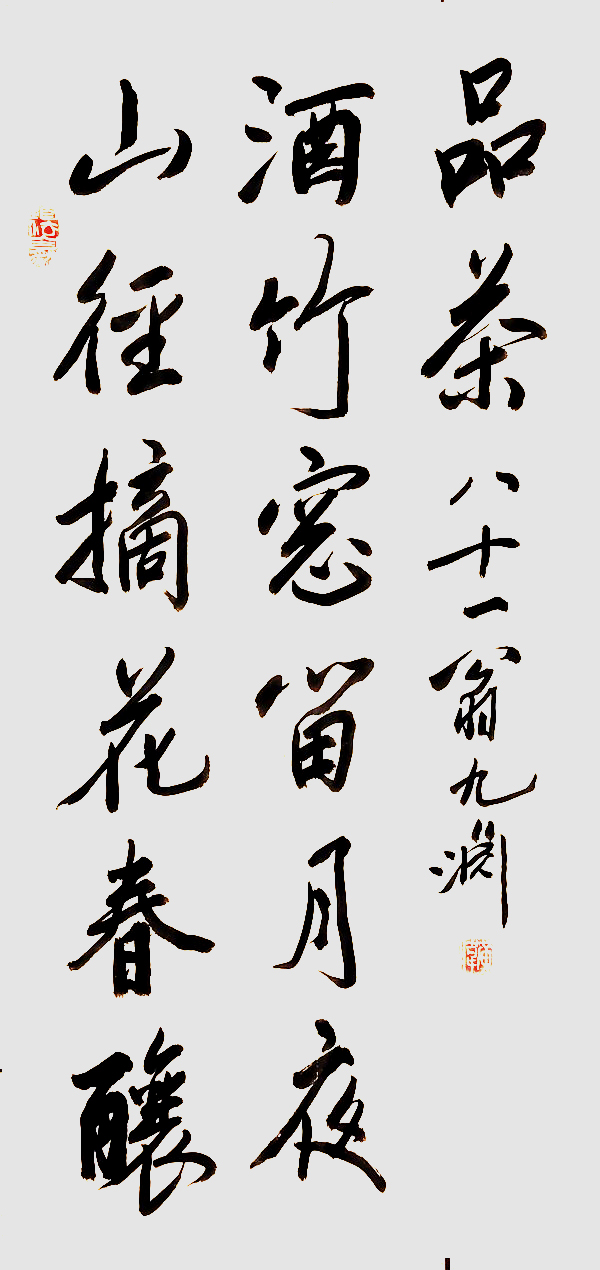 山徑摘花春釀
酒竹窓留月夜
品茶 八十一翁九淵